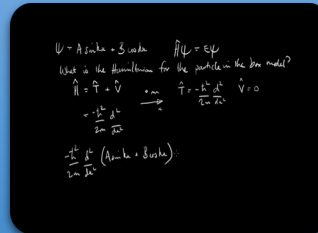 Ψ = A sin kx + B cos kx Ĥψ = Eψ
What is the Hamiltonian for the particle in the box model?
Ĥ = T̂ + V̂ → T̂ = -ħ²/2m d²/dx² V̂ = 0
= -ħ²/2m d²/dx²
-ħ²/2m d²/dx² (A sin kx + B cos kx)